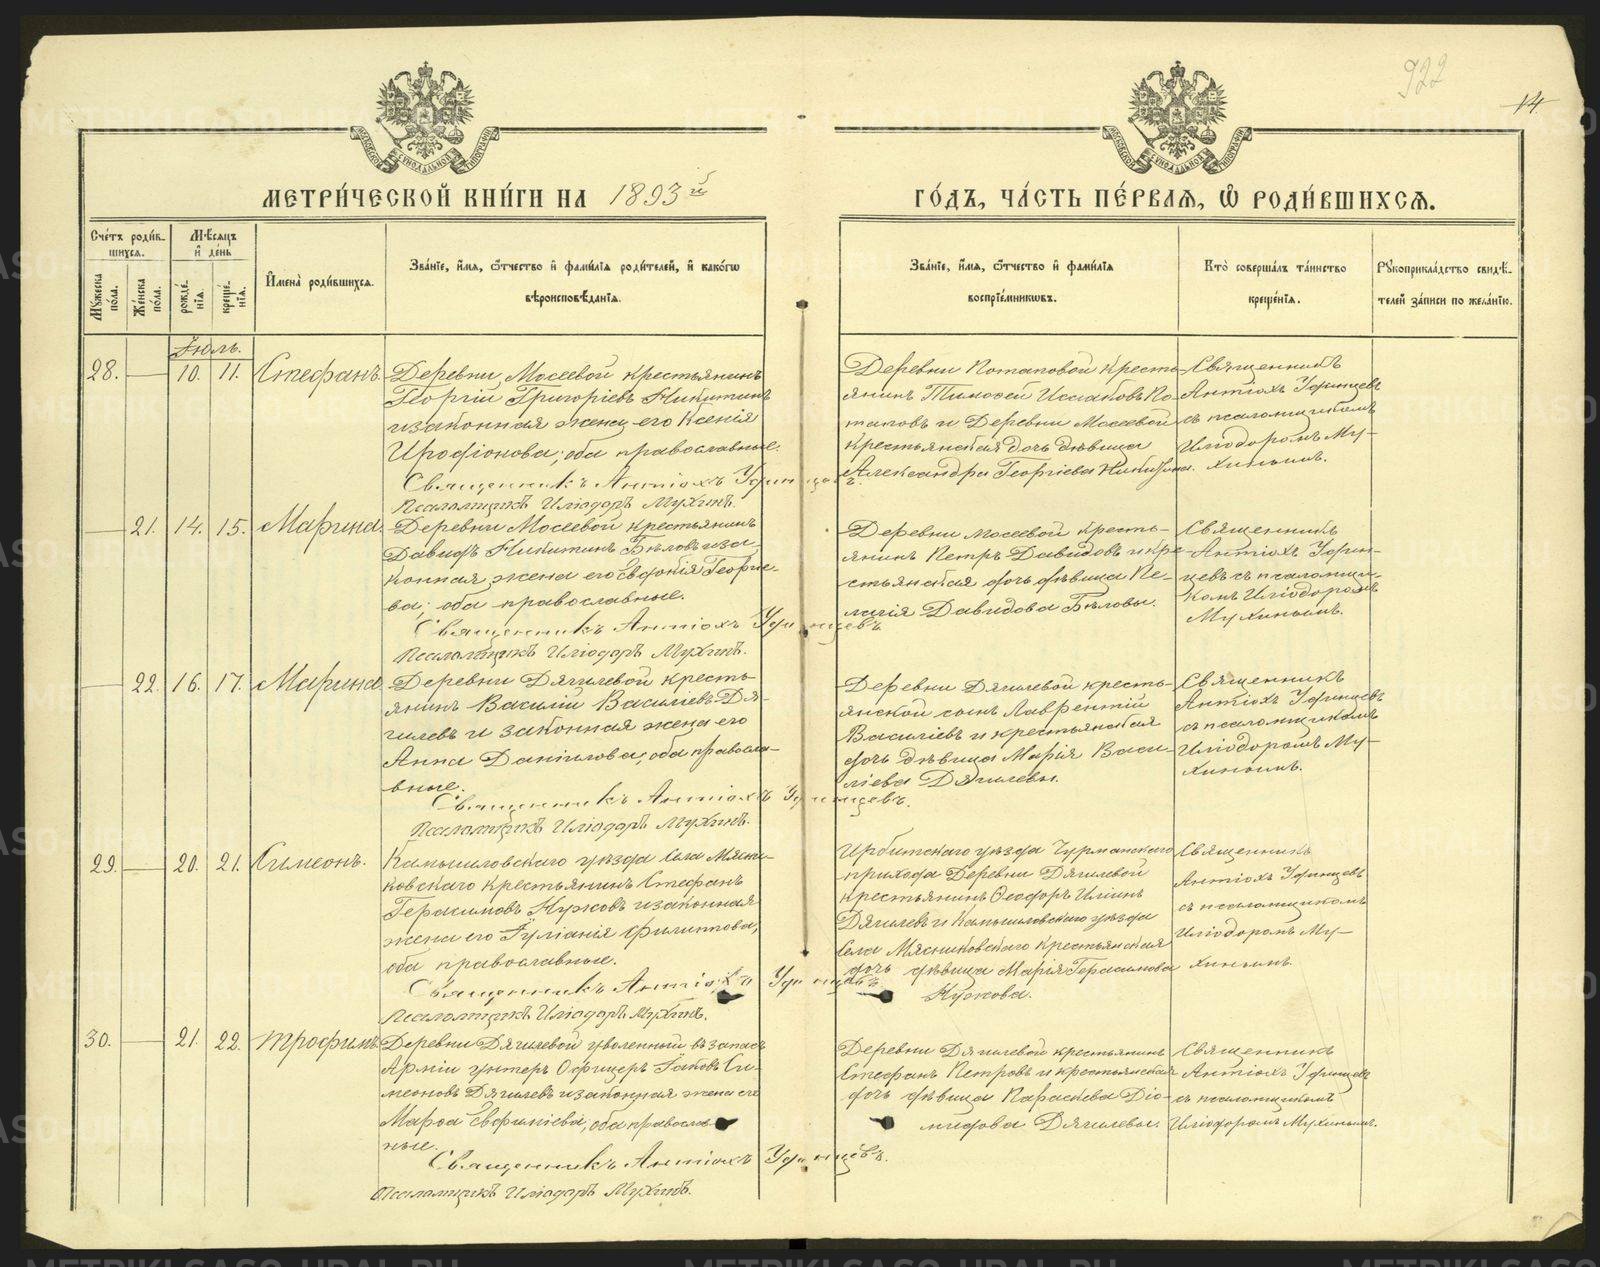 922
14
МОСКОВСКОЙ СѴНОДАЛЬНОЙ ТИПОГРАФІИ
МОСКОВСКОЙ СѴНОДАЛЬНОЙ ТИПОГРАФІИ
МЕТРИ́ЧЕСКОЙ КНИ́ГИ НА 1893й
ГО́ДЪ, ЧА́СТЬ ПЕ́РВАѦ, Ѡ҆ РОДИ́ВШИХСѦ.
Сче́тъ роди́в-
шихсѧ.
Мꙋжеска по́ла.
Же́нска по́ла.
Мѣ́сѧцъ
и҆ де́нь
рожде́-
нїѧ.
креще́-
нїѧ.
И҆мена̀ роди́вшихсѧ.
Зва́нїе, и҆́мѧ, ѻ҆́тчество и҆ фами́лїѧ роди́телей, и҆ како́гѡ
вѣроисповѣ́данїѧ.
Зва́нїе, и҆́мѧ, ѻ҆́тчество и҆ фами́лїѧ
воспрїе́мникѡвъ.
Кто̀ соверша́лъ та́инство
креще́нїѧ.
Рꙋкоприкла́дство свидѣ́-
телей за́писи по жела́нїю.
Іюль.
28. — 10. 11. Стефанъ.
Деревни Мосеевой крестьянинъ
Георгій Григоріевъ Никитинъ
и законная жена его Ксенія
Иродіонова, оба православные.
Священникъ Антіохъ Удинцевъ.
Псаломщикъ Иліодоръ Мухинъ.
Деревни Потаповой кресть-
янинъ Тимофей Исааковъ По-
таповъ и Деревни Мосеевой
крестьянская дочь дѣвица
Александра Георгіева Никитина.
Священникъ
Антіохъ Удинцевъ
съ псаломщикомъ
Иліодоромъ Му-
хинымъ.
— 21. 14. 15. Марина.
Деревни Мосеевой крестьянинъ
Давидъ Никитинъ Бѣловъ и за-
конная жена его Евдокія Георгіе-
ва, оба православные.
Священникъ Антіохъ Удинцевъ.
Псаломщикъ Иліодоръ Мухинъ.
Деревни Мосеевой кресть-
янинъ Петръ Давидовъ и кре-
стьянская дочь дѣвица Пе-
лагія Давидова Бѣловы.
Священникъ
Антіохъ Удин-
цевъ съ псаломщи-
комъ Иліодоромъ
Мухинымъ.
— 22. 16. 17. Марина
Деревни Дягилевой кресть-
янинъ Василій Василіевъ Дя-
гилевъ и законная жена его
Анна Даніилова, оба правосла-
вные.
Священникъ Антіохъ Удинцевъ.
Псаломщикъ Иліодоръ Мухинъ.
Деревни Дягилевой кресть-
янской сынъ Лаврентій
Василіевъ и крестьянская
дочь дѣвица Марія Васи-
ліева Дягилевы.
Священникъ
Антіохъ Удинцевъ
съ псаломщикомъ
Иліодоромъ Му-
хинымъ.
29. — 20. 21. Симеонъ.
Камышловскаго уѣзда Села Мясни-
ковскаго крестьянинъ Стефанъ
Герасимовъ Кужовъ и законная
жена его Іуліанія Филиппова,
оба православные.
Священникъ Антіохъ Удинцевъ
Псаломщикъ Иліодоръ Мухинъ.
Ирбитскаго уѣзда Чурманскаго
прихода Деревни Дягилевой
крестьянинъ Ѳеодоръ Ильинъ
Дягилевъ и Камышловскаго уѣзда
Села Мясниковскаго крестьянская
дочь дѣвица Марія Герасимова
Кужова.
Священникъ
Антіохъ Удинцевъ
съ псаломщикомъ
Иліодоромъ Му-
хинымъ.
30. — 21. 22. Трофимъ.
Деревни Дягилевой уволенный въ запасъ
Арміи унтеръ Офицеръ Іаковъ Си-
меоновъ Дягилевъ и законная жена его
Марѳа Евфиміева, оба православ-
ные.
Священникъ Антіохъ Удинцевъ.
Псаломщикъ Иліодоръ Мухинъ.
Деревни Дягилевой крестьянинъ
Стефанъ Петровъ и крестьянская
дочь дѣвица Параскева Діо-
мидова Дягилевы.
Священникъ
Антіохъ Удинцевъ
съ псаломщикомъ
Иліодоромъ Мухинымъ.
METRIKI.GASO-URAL.RU